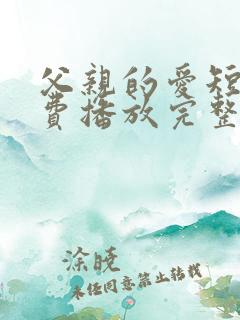 父親的愛短
費播放完整
涂曉
未经同意禁止转载